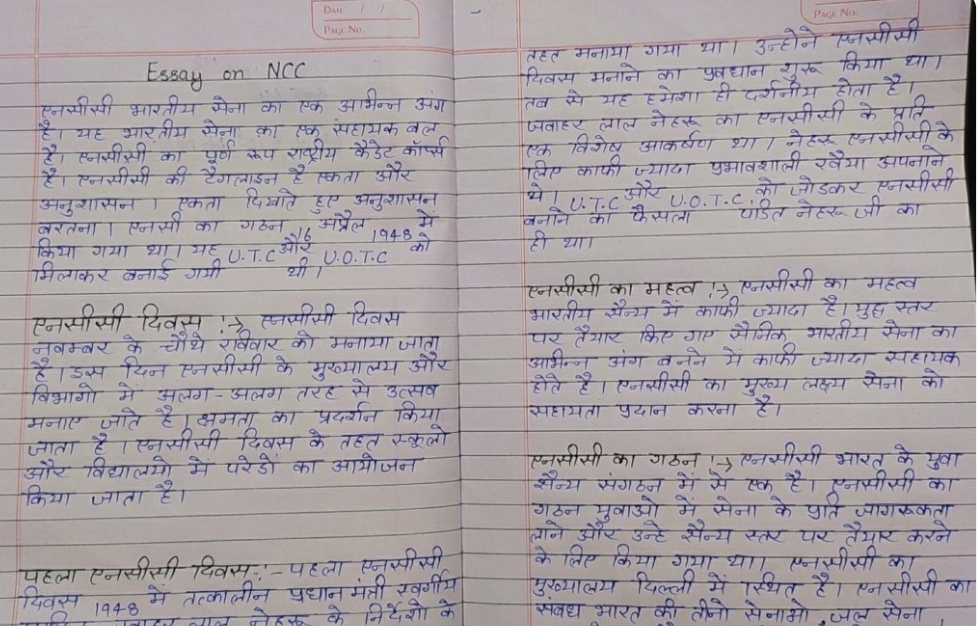 DATE / /
PAGE NO.
Essay on NCC
एनसीसी भारतीय सेना का एक अभिन्न अंग
है। यह भारतीय सेना का एक सहायक बल
है। एनसीसी का पूर्ण रूप राष्ट्रीय कैडेट कॉर्प्स
है। एनसीसी की टैगलाइन है एकता और
अनुशासन। एकता दिखाते हुए अनुशासन
बरतना। एनसी का गठन 16 अप्रैल 1948 में
किया गया था। यह U.T.C और U.O.T.C को
मिलाकर बनाई गयी थी।
एनसीसी दिवस :→ एनसीसी दिवस
नवम्बर के चौथे रविवार को मनाया जाता
है। इस दिन एनसीसी के मुख्यालय और
विभागो में अलग-अलग तरह से उत्सव
मनाए जाते है। क्षमता का प्रदर्शन किया
जाता है। एनसीसी दिवस के तहत स्कूलो
और विद्यालयो में परेडो का आयोजन
किया जाता है।
पहला एनसीसी दिवस:- पहला एनसीसी
दिवस 1948 में तत्कालीन प्रधान मंत्री स्वर्गीय
लाल नेहरू के निर्देशो के
PAGE NO.
तहत मनाया गया था। उन्होने एनसीसी
दिवस मनाने का प्रवधान शुरू किया था।
तब से यह हमेशा ही दर्शनीय होता है।
जवाहर लाल नेहरू का एनसीसी के प्रति
एक विशेष आकर्षण था। नेहरू एनसीसी के
लिए काफी ज्यादा प्रभावशाली रवैया अपनाने
थे। U.T.C और U.O.T.C. को जोडकर एनसीसी
बनाने का फैसला पंडित नेहरू जी का
ही था।
एनसीसी का महत्व :→ एनसीसी का महत्व
भारतीय सैन्य में काफी ज्यादा है। युद्ध स्तर
पर तैयार किए गए सैनिक भारतीय सेना का
अभिन्न अंग बनने में काफी ज्यादा सहायक
होते है। एनसीसी का मुख्य लक्ष्य सेना को
सहायता प्रदान करना है।
एनसीसी का गठन :→ एनसीसी भारत के युवा
सैन्य संगठन में से एक है। एनसीसी का
गठन युवाओ में सेना के प्रति जागरूकता
लाने और उन्हे सैन्य स्तर पर तैयार करने
के लिए किया गया था। एनसीसी का
मुख्यालय दिल्ली में स्थित है। एनसीसी का
संबंध भारत की तीनो सेनाओ, जल सेना,